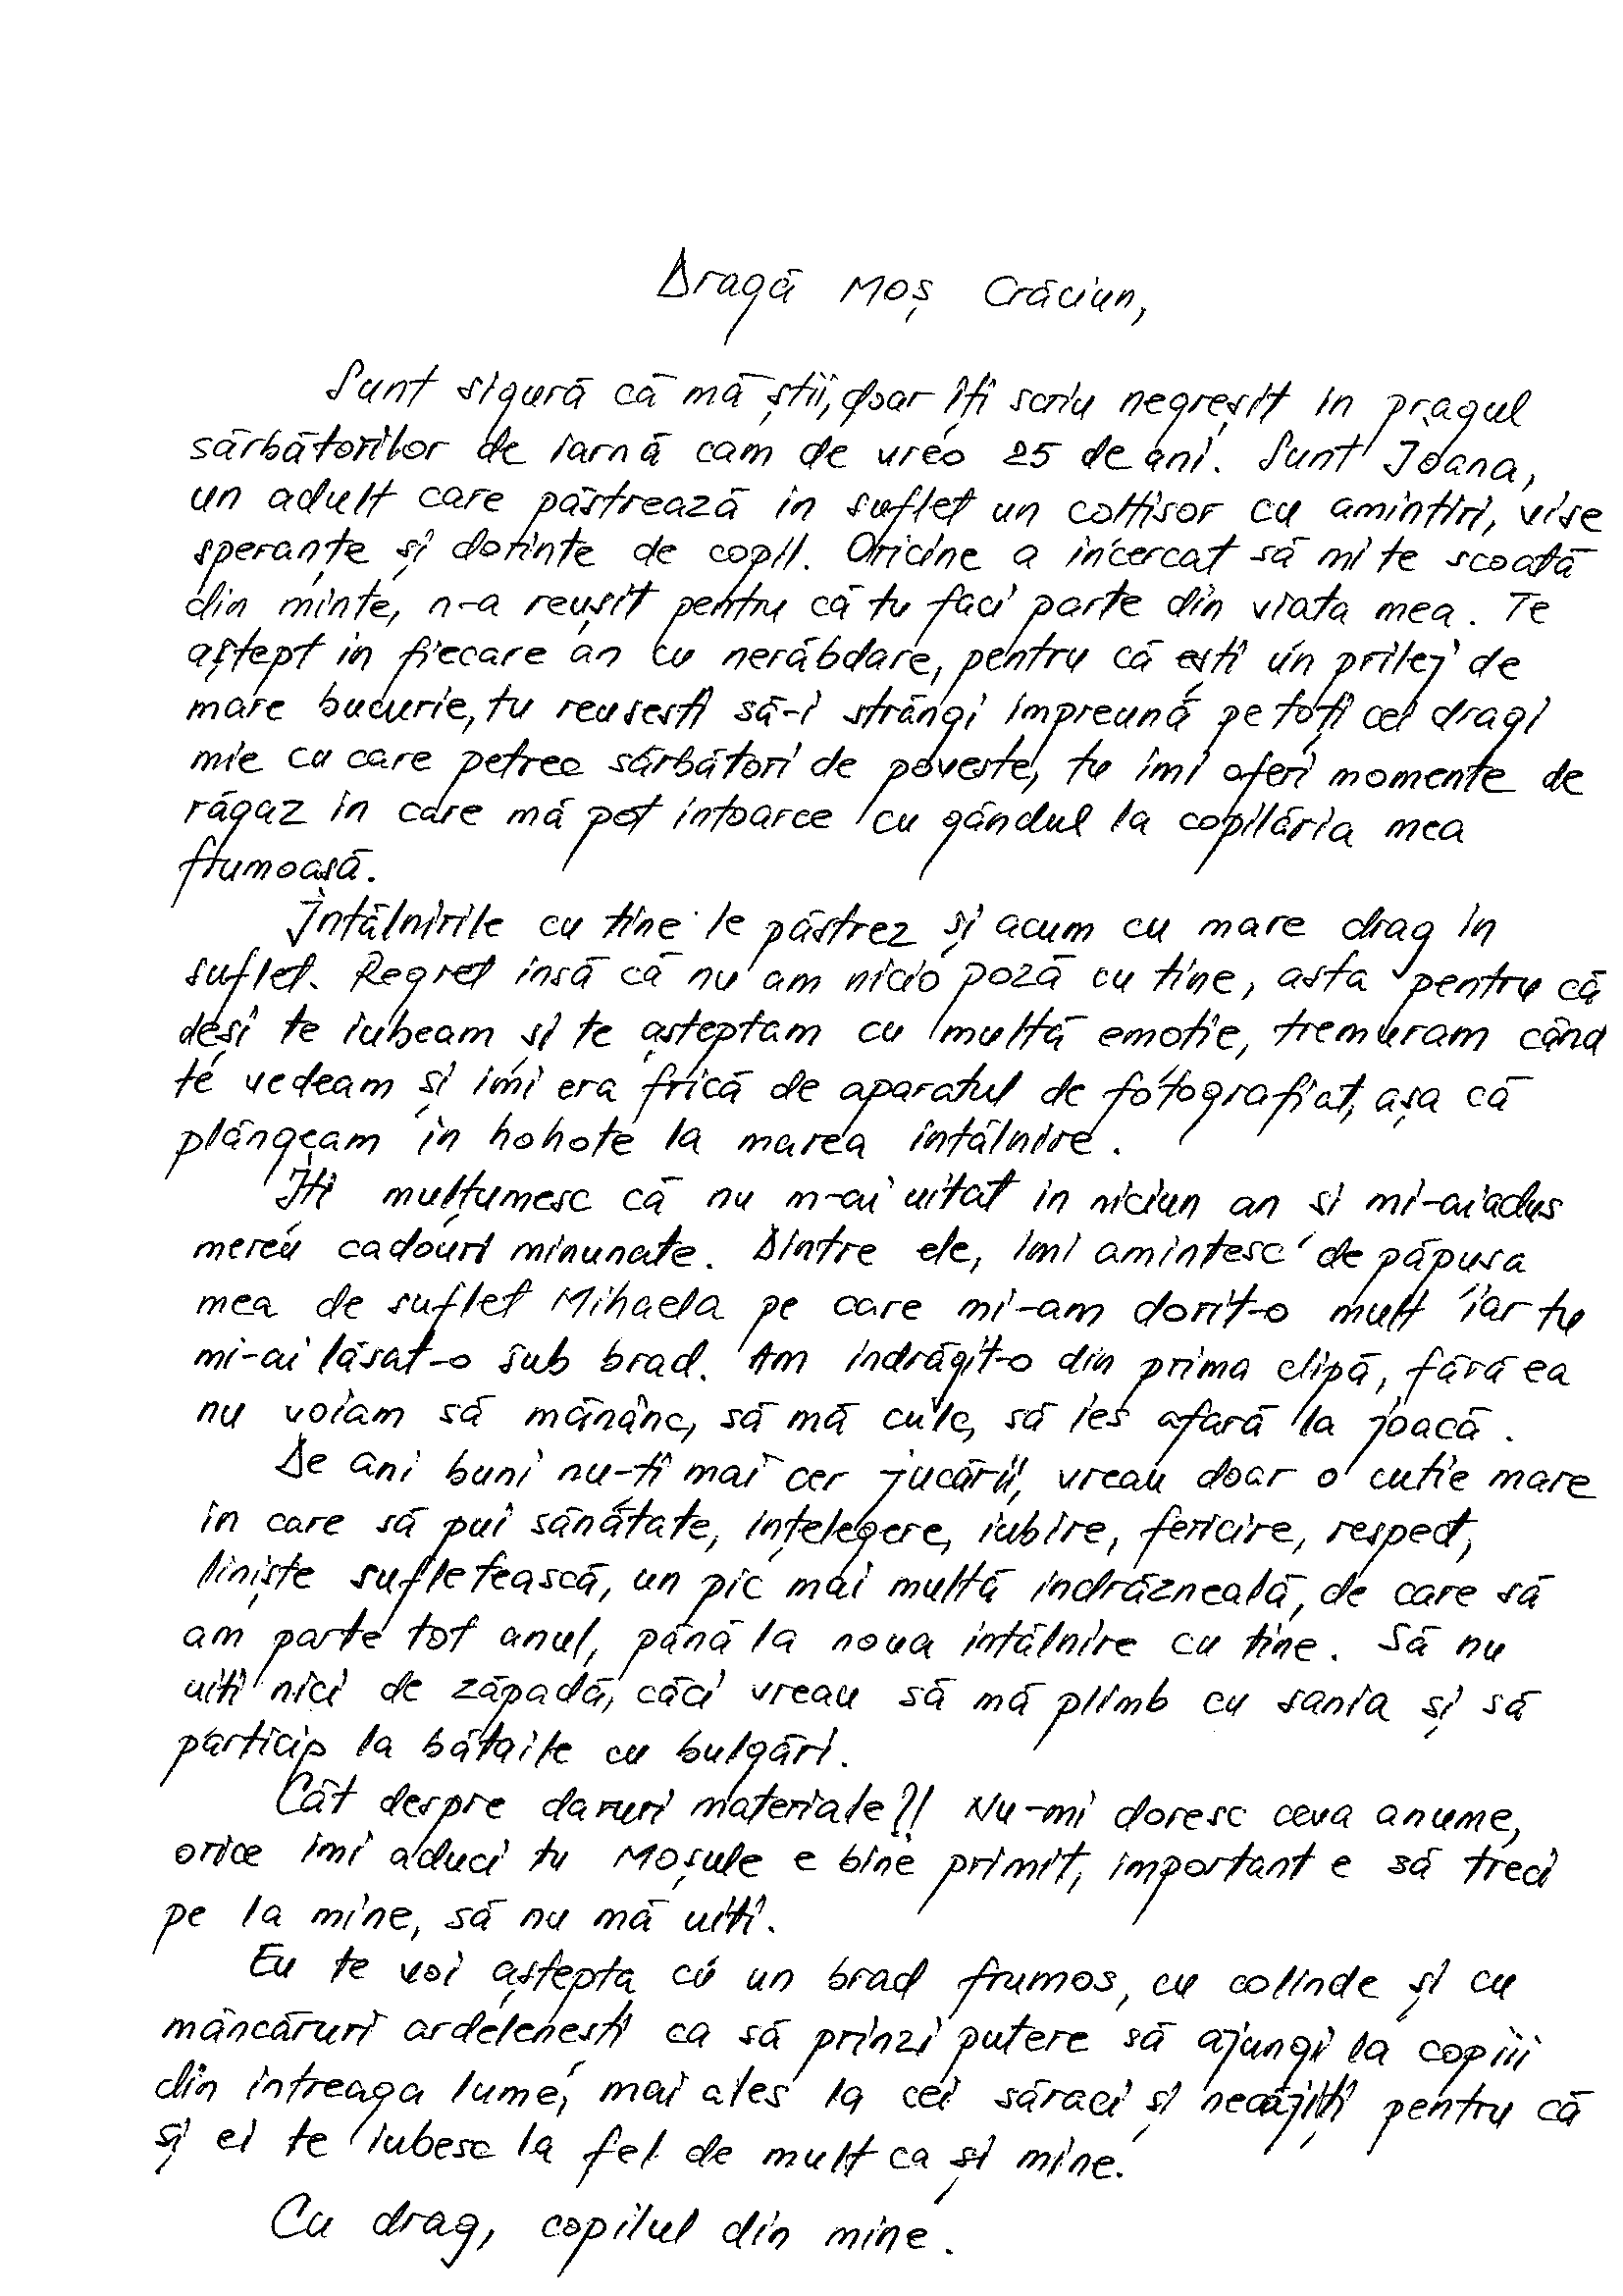 Dragă Moș Crăciun,
Sunt sigură că mă știi, doar îți scriu negreșit in pragul
sărbătorilor de iarnă cam de vreo 25 de ani. Sunt Ioana,
un adult care păstrează in suflet un coltisor cu amintiri, vise
speranțe și dorinte de copil. Oricine a incercat să mi te scoată
din minte, n-a reușit pentru că tu faci parte din viata mea. Te
aștept in fiecare an cu nerăbdare, pentru că ești un prilej de
mare bucurie, tu reusesti să-i strângi impreună pe toți cei dragi
mie cu care petrec sărbători de poveste, tu imi oferi momente de
răgaz in care mă pot intoarce cu gândul la copilăria mea
frumoasă.
Întâlnirile cu tine le păstrez și acum cu mare drag in
suflet. Regret insă că nu am nicio poză cu tine, asta pentru că
deși te iubeam si te așteptam cu multă emotie, tremuram când
te vedeam și imi era frică de aparatul de fotografiat, așa că
plângeam in hohote la marea intâlnire.
Iti mulțumesc că nu m-ai uitat in niciun an si mi-ai adus
mereu cadouri minunate. Dintre ele, imi amintesc de păpusa
mea de suflet Mihaela pe care mi-am dorit-o mult iar tu
mi-ai lăsat-o sub brad. Am indrăgit-o din prima clipă, fără ea
nu voiam să mănânc, să mă culc, să ies afară la joacă.
De ani buni nu-ti mai cer jucării, vreau doar o cutie mare
in care să pui sănătate, ințelegere, iubire, fericire, respect,
liniște sufletească, un pic mai multă indrăzneală, de care să
am parte tot anul, până la noua intâlnire cu tine. Să nu
uiti nici de zăpadă, căci vreau să mă plimb cu sania și să
particip la bătaile cu bulgări.
Cât despre daruri materiale?! Nu-mi doresc ceva anume,
orice imi aduci tu Moșule e bine primit, important e să treci
pe la mine, să nu mă uiti.
Eu te voi aștepta cu un brad frumos, cu colinde și cu
mâncăruri ardelenesti ca să prinzi putere să ajungi la copiii
din intreaga lume, mai ales la cei săraci și necăjiți pentru că
și ei te iubesc la fel de mult ca și mine.
Cu drag, copilul din mine.